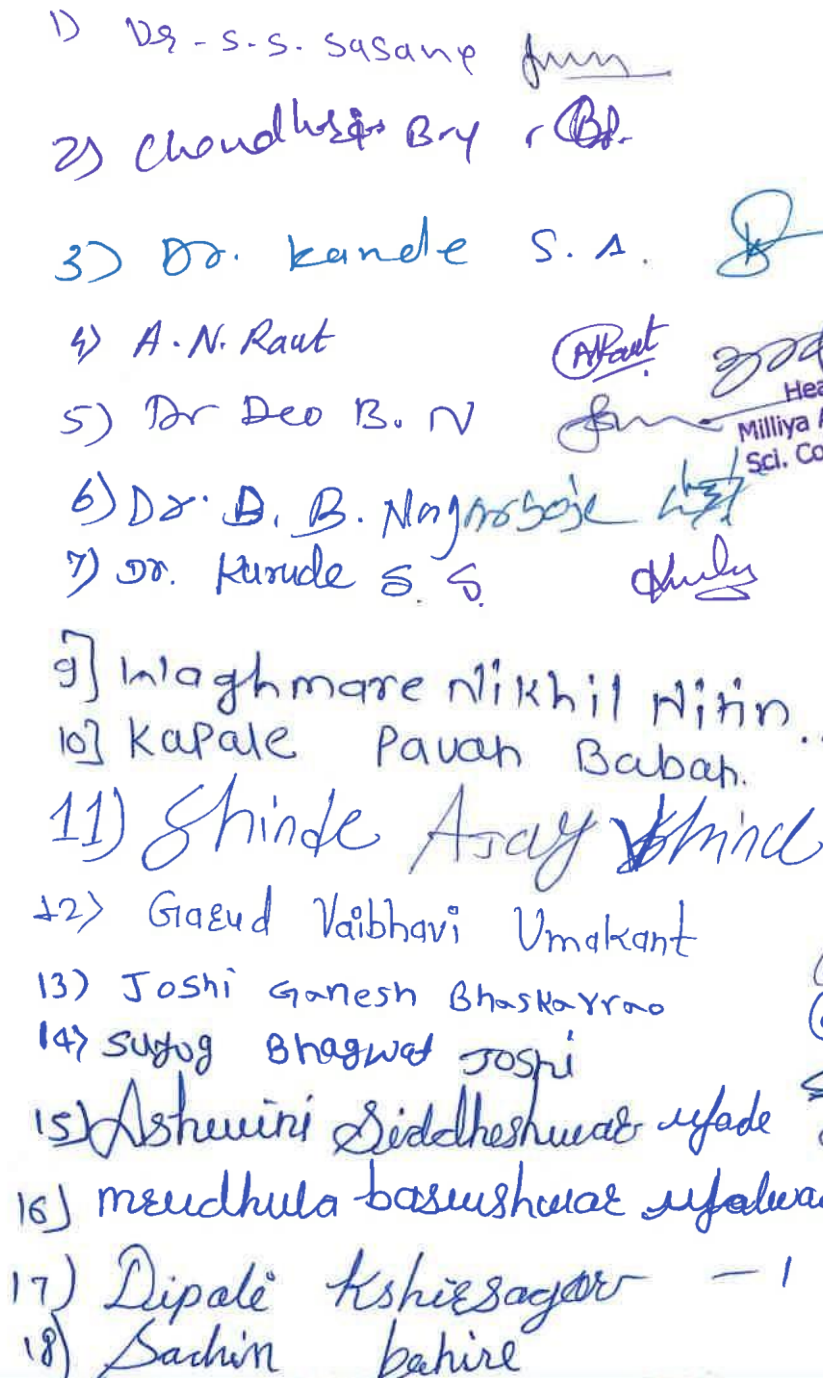 1) Dr - S. S. Sasane
2) Choudhari B.Y
3) Dr. Kande S. A.
4) A. N. Raut ARaut
5) Dr Deo B. N
Hea
Milliya A
Sci. Co
6) Dr. B. B. Nagarsoje
7) Dr. Kurude S. S.
9] Waghmare Nikhil Nitin..
10] Kapale Pavan Baban.
11) Shinde Ajay Shind
12) Garud Vaibhavi Umakant
13) Joshi Ganesh Bhaskarrao
14) Suyog Bhagwat Joshi
15) Ashwini Siddheshwar
16] mrudhula
17) Dipali Kshirsagar - 1
18) Sachin bahire